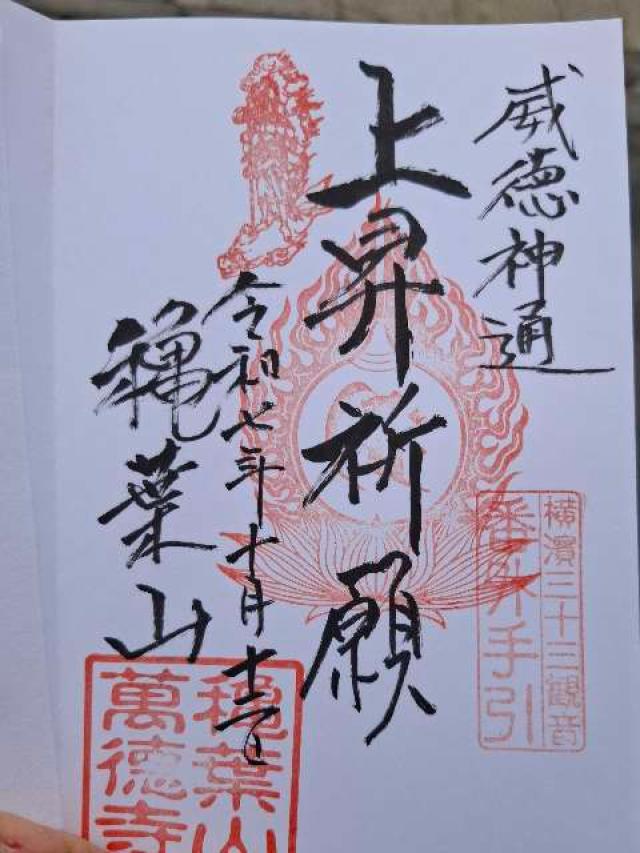 威徳神通
横濱三十三觀音
番外手引
上昇祈願
令和七年十月
穐葉山
穐葉山
萬徳寺